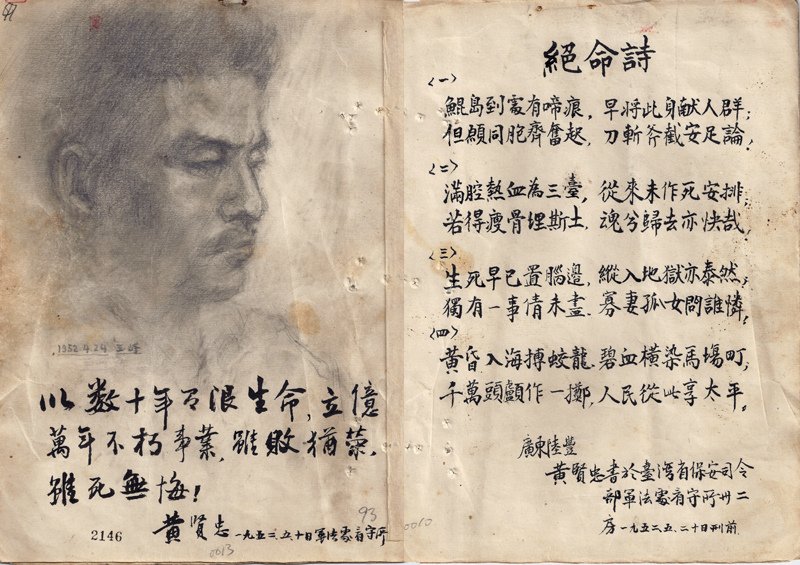 1952.4.24
以数十年有限生命,立億
萬年不朽事業,雖敗猶榮,
雖死無悔!
黃賢忠 一九五二、五、十日軍法處看守所
2146
0013
93
0010
絕命詩
<一>
鯤島到處有啼痕,早將此身献人群;
但願同胞齊奮起,刀斬斧截安足論,
<二>
滿腔熱血為三臺,從來未作死安排,
若得瘦骨埋斯土,魂兮歸去亦快哉,
<三>
生死早已置腦邊,縱入地獄亦泰然,
獨有一事情未盡,寡妻孤女問誰憐,
<四>
黃昏入海搏蛟龍,碧血橫染馬場町,
千萬頭顱作一擲,人民從此享太平,
廣東陸豐
黃賢忠書於臺灣省保安司令
部軍法處看守所卅二
房 一九五二、五、二十日刑前